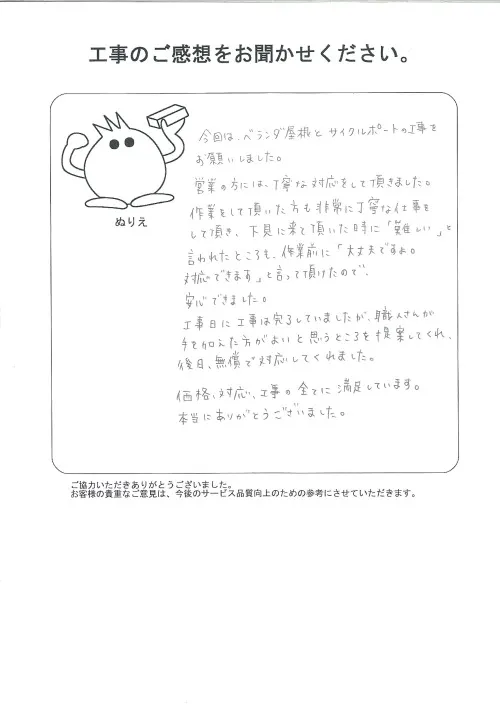 工事のご感想をお聞かせください。
ぬりえ
今回は、ベランダ屋根とサイクルポートの工事を
お願いしました。
営業の方には、丁寧な対応をして頂きました。
作業をして頂いた方も非常に丁寧な仕事を
して頂き、下見に来て頂いた時に「難しい」と
言われたところも、作業前に「大丈夫ですよ。
対応できます」と言って頂けたので、
安心できました。
工事日に工事は完了していましたが、職人さんが
手を加えた方がよいと思うところを提案してくれ、
後日、無償で対応してくれました。
価格、対応、工事の全てに満足しています。
本当にありがとうございました。
ご協力いただきありがとうございました。
お客様の貴重なご意見は、今後のサービス品質向上のための参考にさせていただきます。